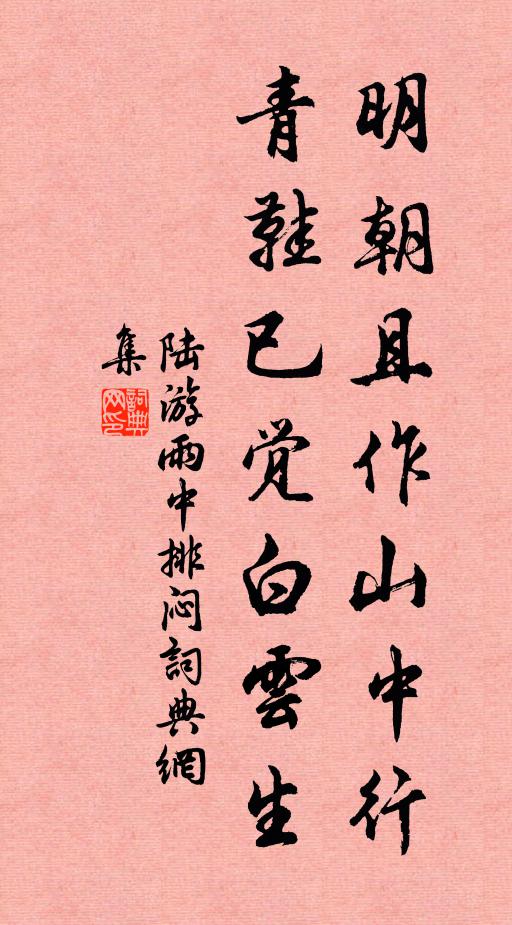 明朝且作山中行
青鞋已觉白雲生
陆游雨中排闷詞典網
集
詞典
网印